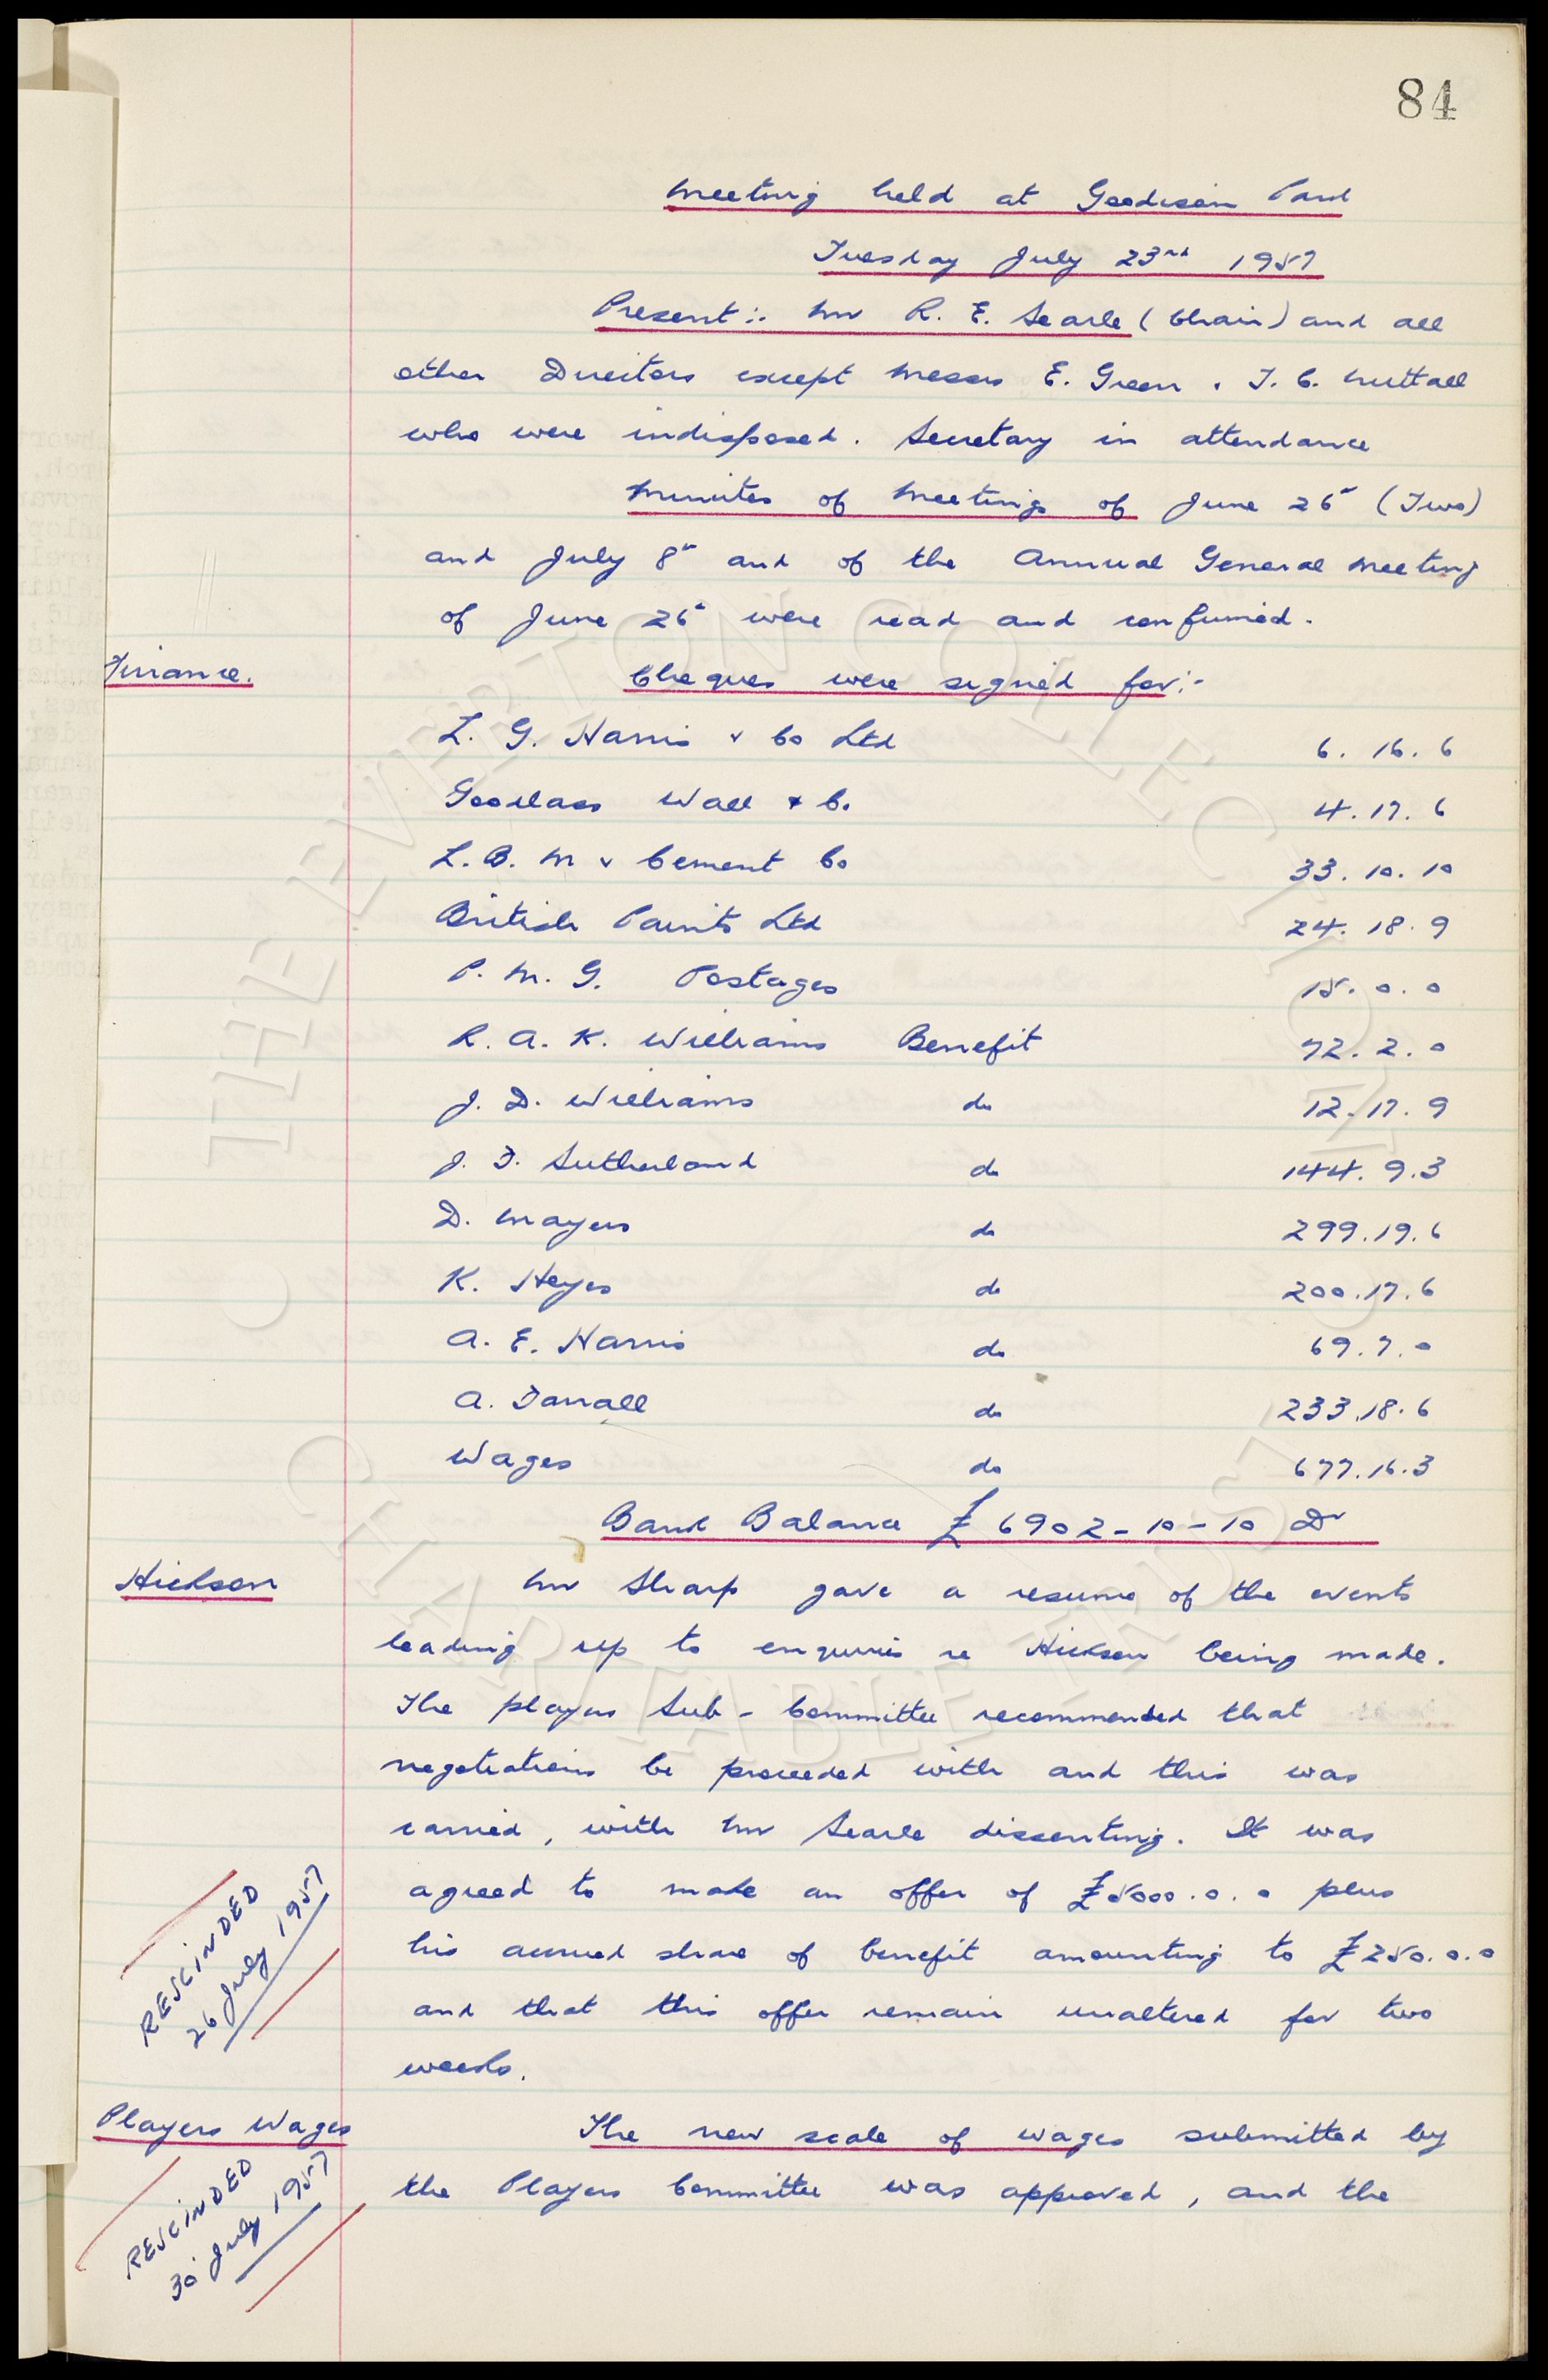 84
Meeting held at Goodison Park
Tuesday July 23rd 1957
Present:- Mr R. E. Searle (Chair) and all
other Directors except Messrs E. Green & T. C. Nuttall
who were indisposed. Secretary in attendance
Minutes of Meetings of June 26th (Two)
and July 8th and of the Annual General Meeting
of June 26th were read and confirmed.
Finance.
Cheques were signed for:-
L. G. Harris & Co Ltd 6. 16. 6
Goodlass Wall & Co 4. 17. 6
L. B. M & Cement Co 33. 10. 10
British Paints Ltd 24. 18. 9
P. M. G. Postages 15. 0. 0
R. A. K. Williams Benefit 72. 2. 0
J. D. Williams do 12. 17. 9
J. F. Sutherland do 144. 9. 3
D. Mayers do 299. 19. 6
K. Heyes do 200. 17. 6
A. E. Harris do 69. 7. 0
A. Farrall do 233. 18. 6
Wages do 677. 16. 3
Bank Balance £6902-10-10 Dr
Hickson
Mr Sharp gave a resume of the events
leading up to enquiries re Hickson being made.
The players Sub-Committee recommended that
negotiations be proceeded with and this was
carried, with Mr Searle dissenting. It was
agreed to make an offer of £5000. 0. 0 plus
his accrued share of benefit amounting to £250. 0. 0
and that this offer remain unaltered for two
weeks.
RESCINDED
26 July 1957
Players Wages
The new scale of wages submitted by
the Players Committee was approved, and the
RESCINDED
30 July 1957
THE EVERTON COLLECTION
CHARITABLE TRUST